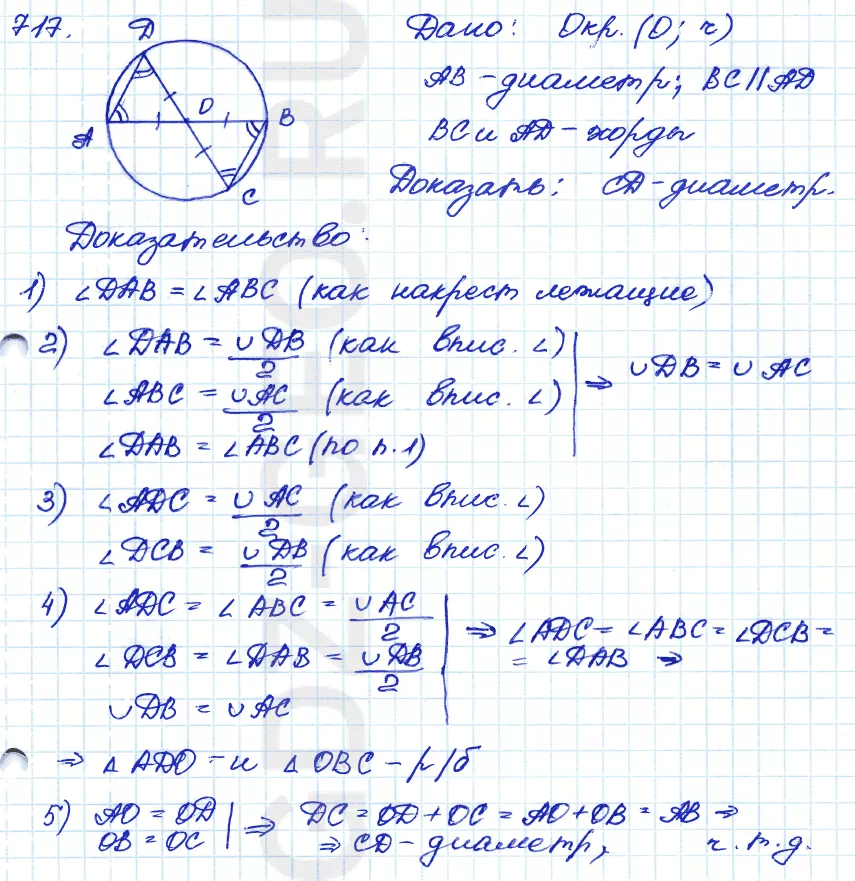 717.
Дано: Окр. (O; r)
AB - диаметр; BC || AD
BC и AD - хорды
Доказать: CD - диаметр.
D
O
A
B
C
Доказательство:
1) ∠DAB = ∠ABC (как накрест лежащие)
2) ∠DAB = ∪DB/2 (как впис. ∠)
∠ABC = ∪AC/2 (как впис. ∠)
∠DAB = ∠ABC (по п.1)
⇒ ∪DB = ∪AC
3) ∠ADC = ∪AC/2 (как впис. ∠)
∠DCB = ∪DB/2 (как впис. ∠)
4) ∠ADC = ∠ABC = ∪AC/2
∠DCB = ∠DAB = ∪DB/2
∪DB = ∪AC
⇒ ∠ADC = ∠ABC = ∠DCB =
= ∠DAB ⇒
⇒ △ADO - и △OBC - р/б
5) AO = OD
OB = OC
⇒ DC = OD + OC = AO + OB = AB ⇒
⇒ CD - диаметр, ч.т.д.
GDZ-GEO.RU